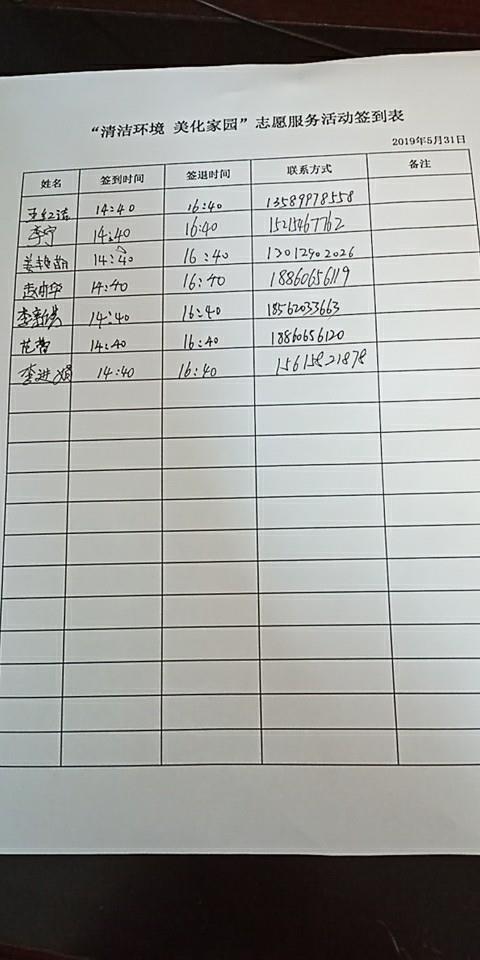 “清洁环境 美化家园”志愿服务活动签到表
2019年5月31日
姓名 签到时间 签退时间 联系方式 备注
14:40 16:40 13589978558
李宁 14:40 16:40 15215467762
14:40 16:40 13012902026
14:40 16:40 18860656119
李新 14:40 16:40 18562033663
范蕾 14:40 16:40 18860656120
李进娟 14:40 16:40 15615821878